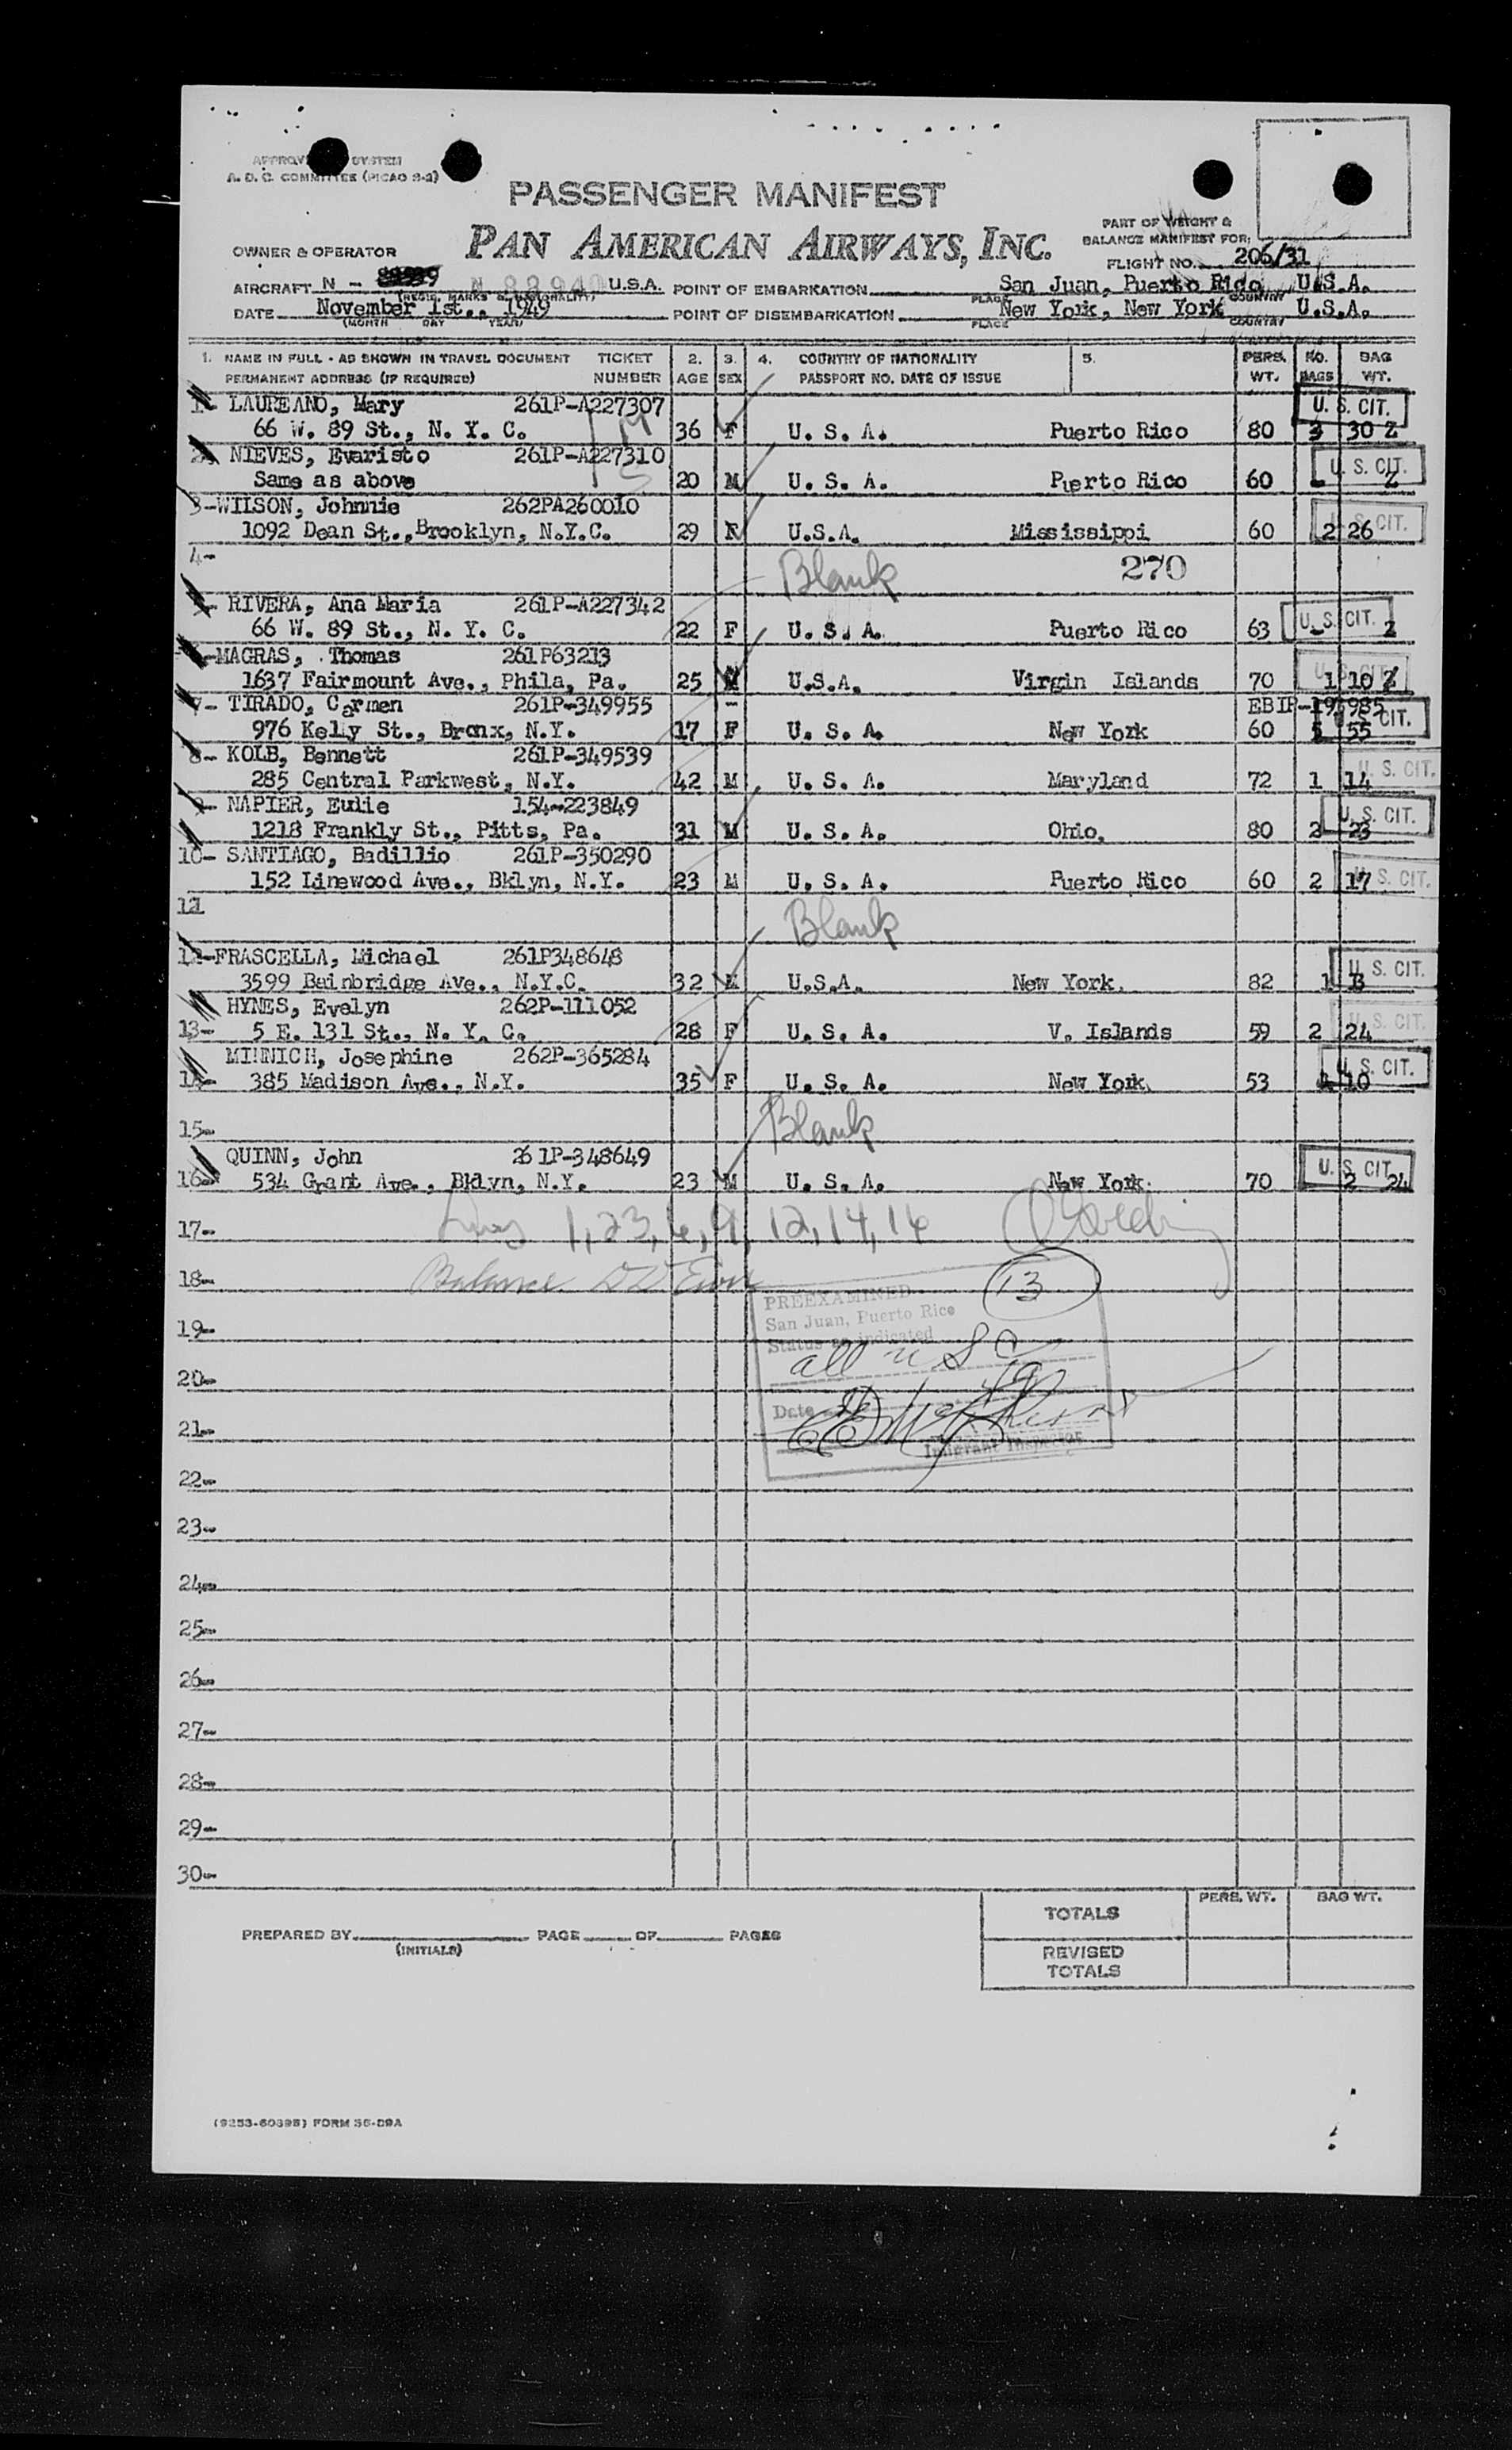 A. D. C. COMMITTEE (PICAO S-2)
PASSENGER MANIFEST
PAN AMERICAN AIRWAYS, INC.
PART OF WEIGHT &
BALANCE MANIFEST FOR:
OWNER & OPERATOR
FLIGHT NO. 206/31
AIRCRAFT N - N 88940 U.S.A. POINT OF EMBARKATION San Juan, Puerto Rico U.S.A.
(REGIS. MARKS & NATIONALITY) PLACE COUNTRY
DATE November 1st., 1949 POINT OF DISEMBARKATION New York, New York U.S.A.
(MONTH DAY YEAR) PLACE COUNTRY
1. NAME IN FULL - AS SHOWN IN TRAVEL DOCUMENT TICKET 2. 3. 4. COUNTRY OF NATIONALITY 5. PERS. NO. BAG
PERMANENT ADDRESS (IF REQUIRED) NUMBER AGE SEX PASSPORT NO. DATE OF ISSUE WT. BAGS WT.
LAUREANO, Mary 261P-A227307 U. S. CIT.
66 W. 89 St., N. Y. C. 36 F U. S. A. Puerto Rico 80 3 30
NIEVES, Evaristo 261P-A227310 U. S. CIT.
Same as above 20 M U. S. A. Puerto Rico 60
3-WILSON, Johnnie 262PA260010 U. S. CIT.
1092 Dean St., Brooklyn, N.Y.C. 29 U.S.A. Mississippi 60 2 26
4- Blank 270
RIVERA, Ana Maria 261P-A227342
66 W. 89 St., N. Y. C. 22 F U. S. A. Puerto Rico 63 U. S. CIT.
MAGRAS, Thomas 261P63213 U. S. CIT.
1637 Fairmount Ave., Phila, Pa. 25 M U.S.A. Virgin Islands 70 1 10
7- TIRADO, Carmen 261P-349955 CIT.
976 Kelly St., Bronx, N.Y. 17 F U. S. A. New York 60 55
8- KOLB, Bennett 261P-349539 U. S. CIT.
285 Central Parkwest, N.Y. 42 M U. S. A. Maryland 72 1 14
9- NAPIER, Eulie 154-223849 U. S. CIT.
1218 Frankly St., Pitts, Pa. 31 M U. S. A. Ohio. 80 2 23
10- SANTIAGO, Badillio 261P-350290
152 Linewood Ave., Bklyn, N.Y. 23 M U. S. A. Puerto Rico 60 2 17 S. CIT.
11 Blank
12-FRASCELLA, Michael 261P348648 U. S. CIT.
3599 Bainbridge Ave., N.Y.C. 32 M U.S.A. New York. 82 1
HYNES, Evelyn 262P-111052 U. S. CIT.
13- 5 E. 131 St., N. Y. C. 28 F U. S. A. V. Islands 59 2 24
MINNICH, Josephine 262P-365284 U. S. CIT.
14- 385 Madison Ave., N.Y. 35 F U. S. A. New York 53 10
15- Blank
QUINN, John 261P-348649 U. S. CIT.
16- 534 Grant Ave., Bklyn, N.Y. 23 M U. S. A. New York. 70 2 24
17- 1, 2 3, 6, 9, 12, 14, 16
18- Balance 13
PREEXAMINED
San Juan, Puerto Rico
19- Status as indicated
all U S C
20-
Date
21-
Immigrant Inspector
22-
23-
24-
25-
26-
27-
28-
29-
30-
PERS. WT. BAG WT.
TOTALS
PREPARED BY PAGE OF PAGES
(INITIALS)
REVISED
TOTALS
(9253-60395) FORM 35-D9A